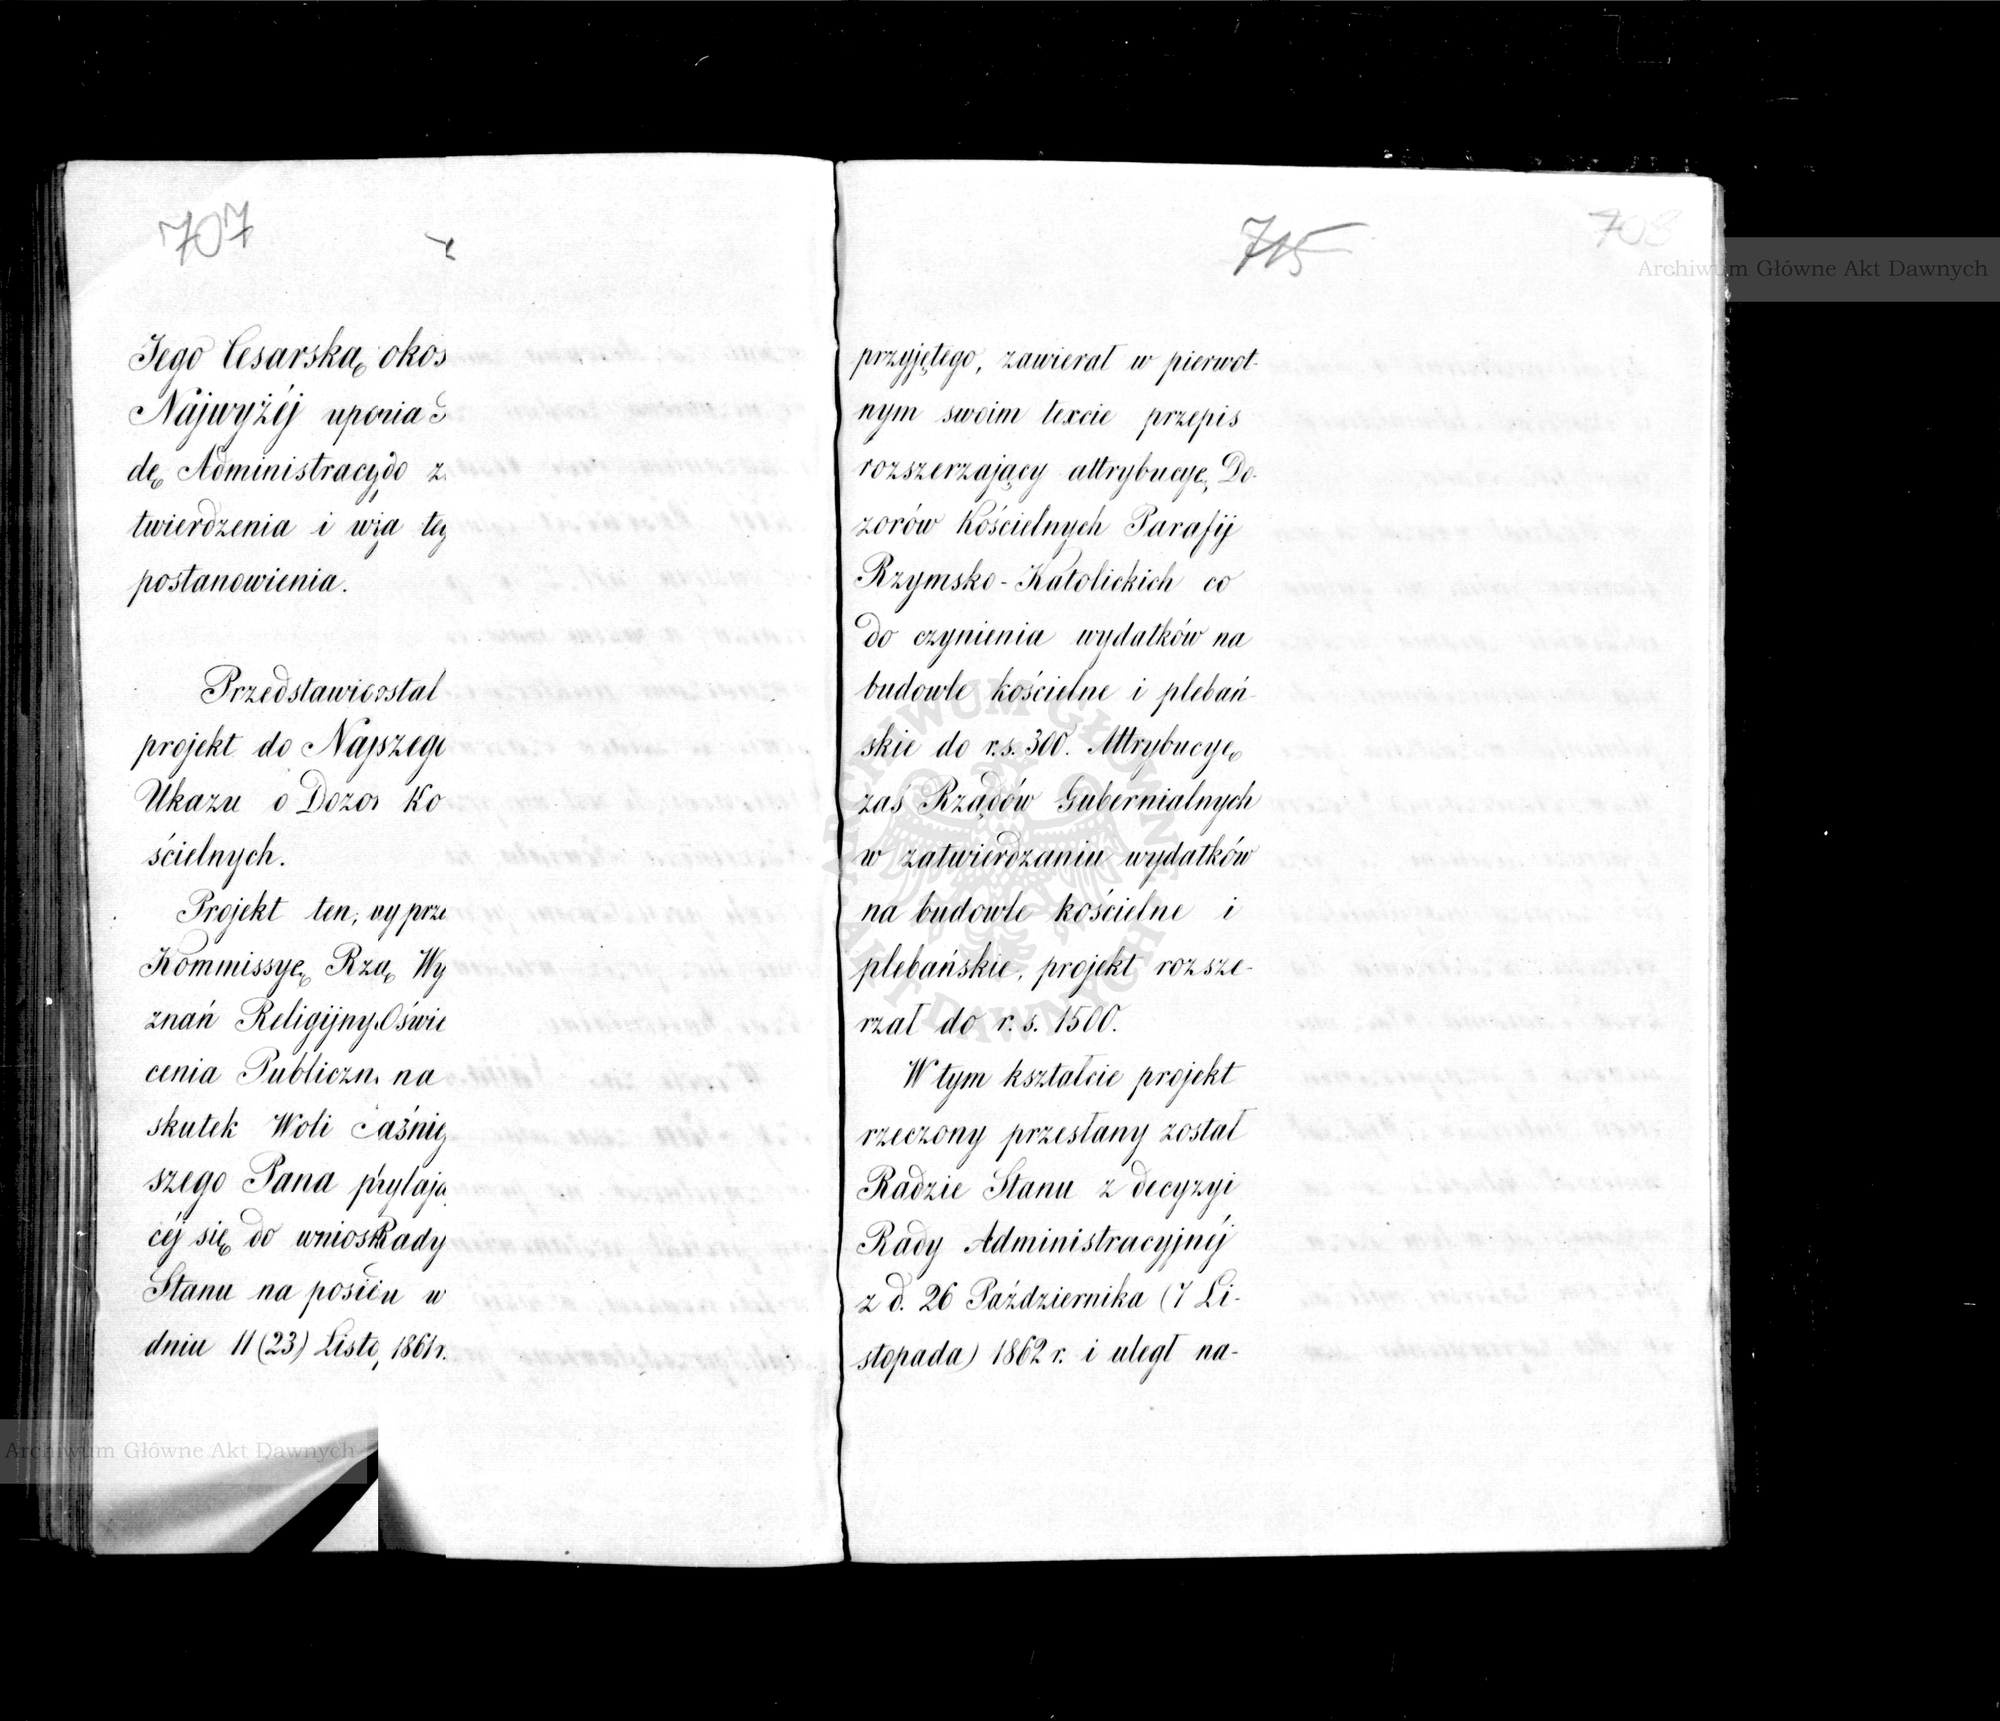 707
Jego Cesarską okos
Najwyżéj upo
dę Administracy do z
twierdzenia i wża teg
postanowienia.
Przedstawio stał
projekt do Naj szego
Ukazu o Dozo Ko
ścielnych.
Projekt ten, ny prze
Kommissyę Rzą Wy
znań Religijny Oświe
cenia Publiczn na
skutek Woli aśniej
szego Pana przy
céj się do wniosk Rady
Stanu na posie u w
dniu 11 (23) Listo, 1861 r.
715 708
przyjętego, zawierał w pierwot-
nym swoim texcie przepis
rozszerzający attrybucyę Do-
zorów Kościelnych Parafij
Rzymsko-Katolickich co
do czynienia wydatków na
budowle kościelne i plebań-
skie do r.s. 300. Attrybucyę
zaś Rządów Gubernialnych
w zatwierdzaniu wydatków
na budowle kościelne i
plebańskie, projekt rozsze-
rzał do r. s. 1500.
W tym kształcie projekt
rzeczony przesłany został
Radzie Stanu z decyzyi
Rady Administracyjnéj
z d. 26 Października (7 Li-
stopada) 1862 r. i uległ na-
Archiwum Główne Akt Dawnych
Archiwum Główne Akt Dawnych
ARCHIWUM GŁÓWNE AKT DAWNYCH